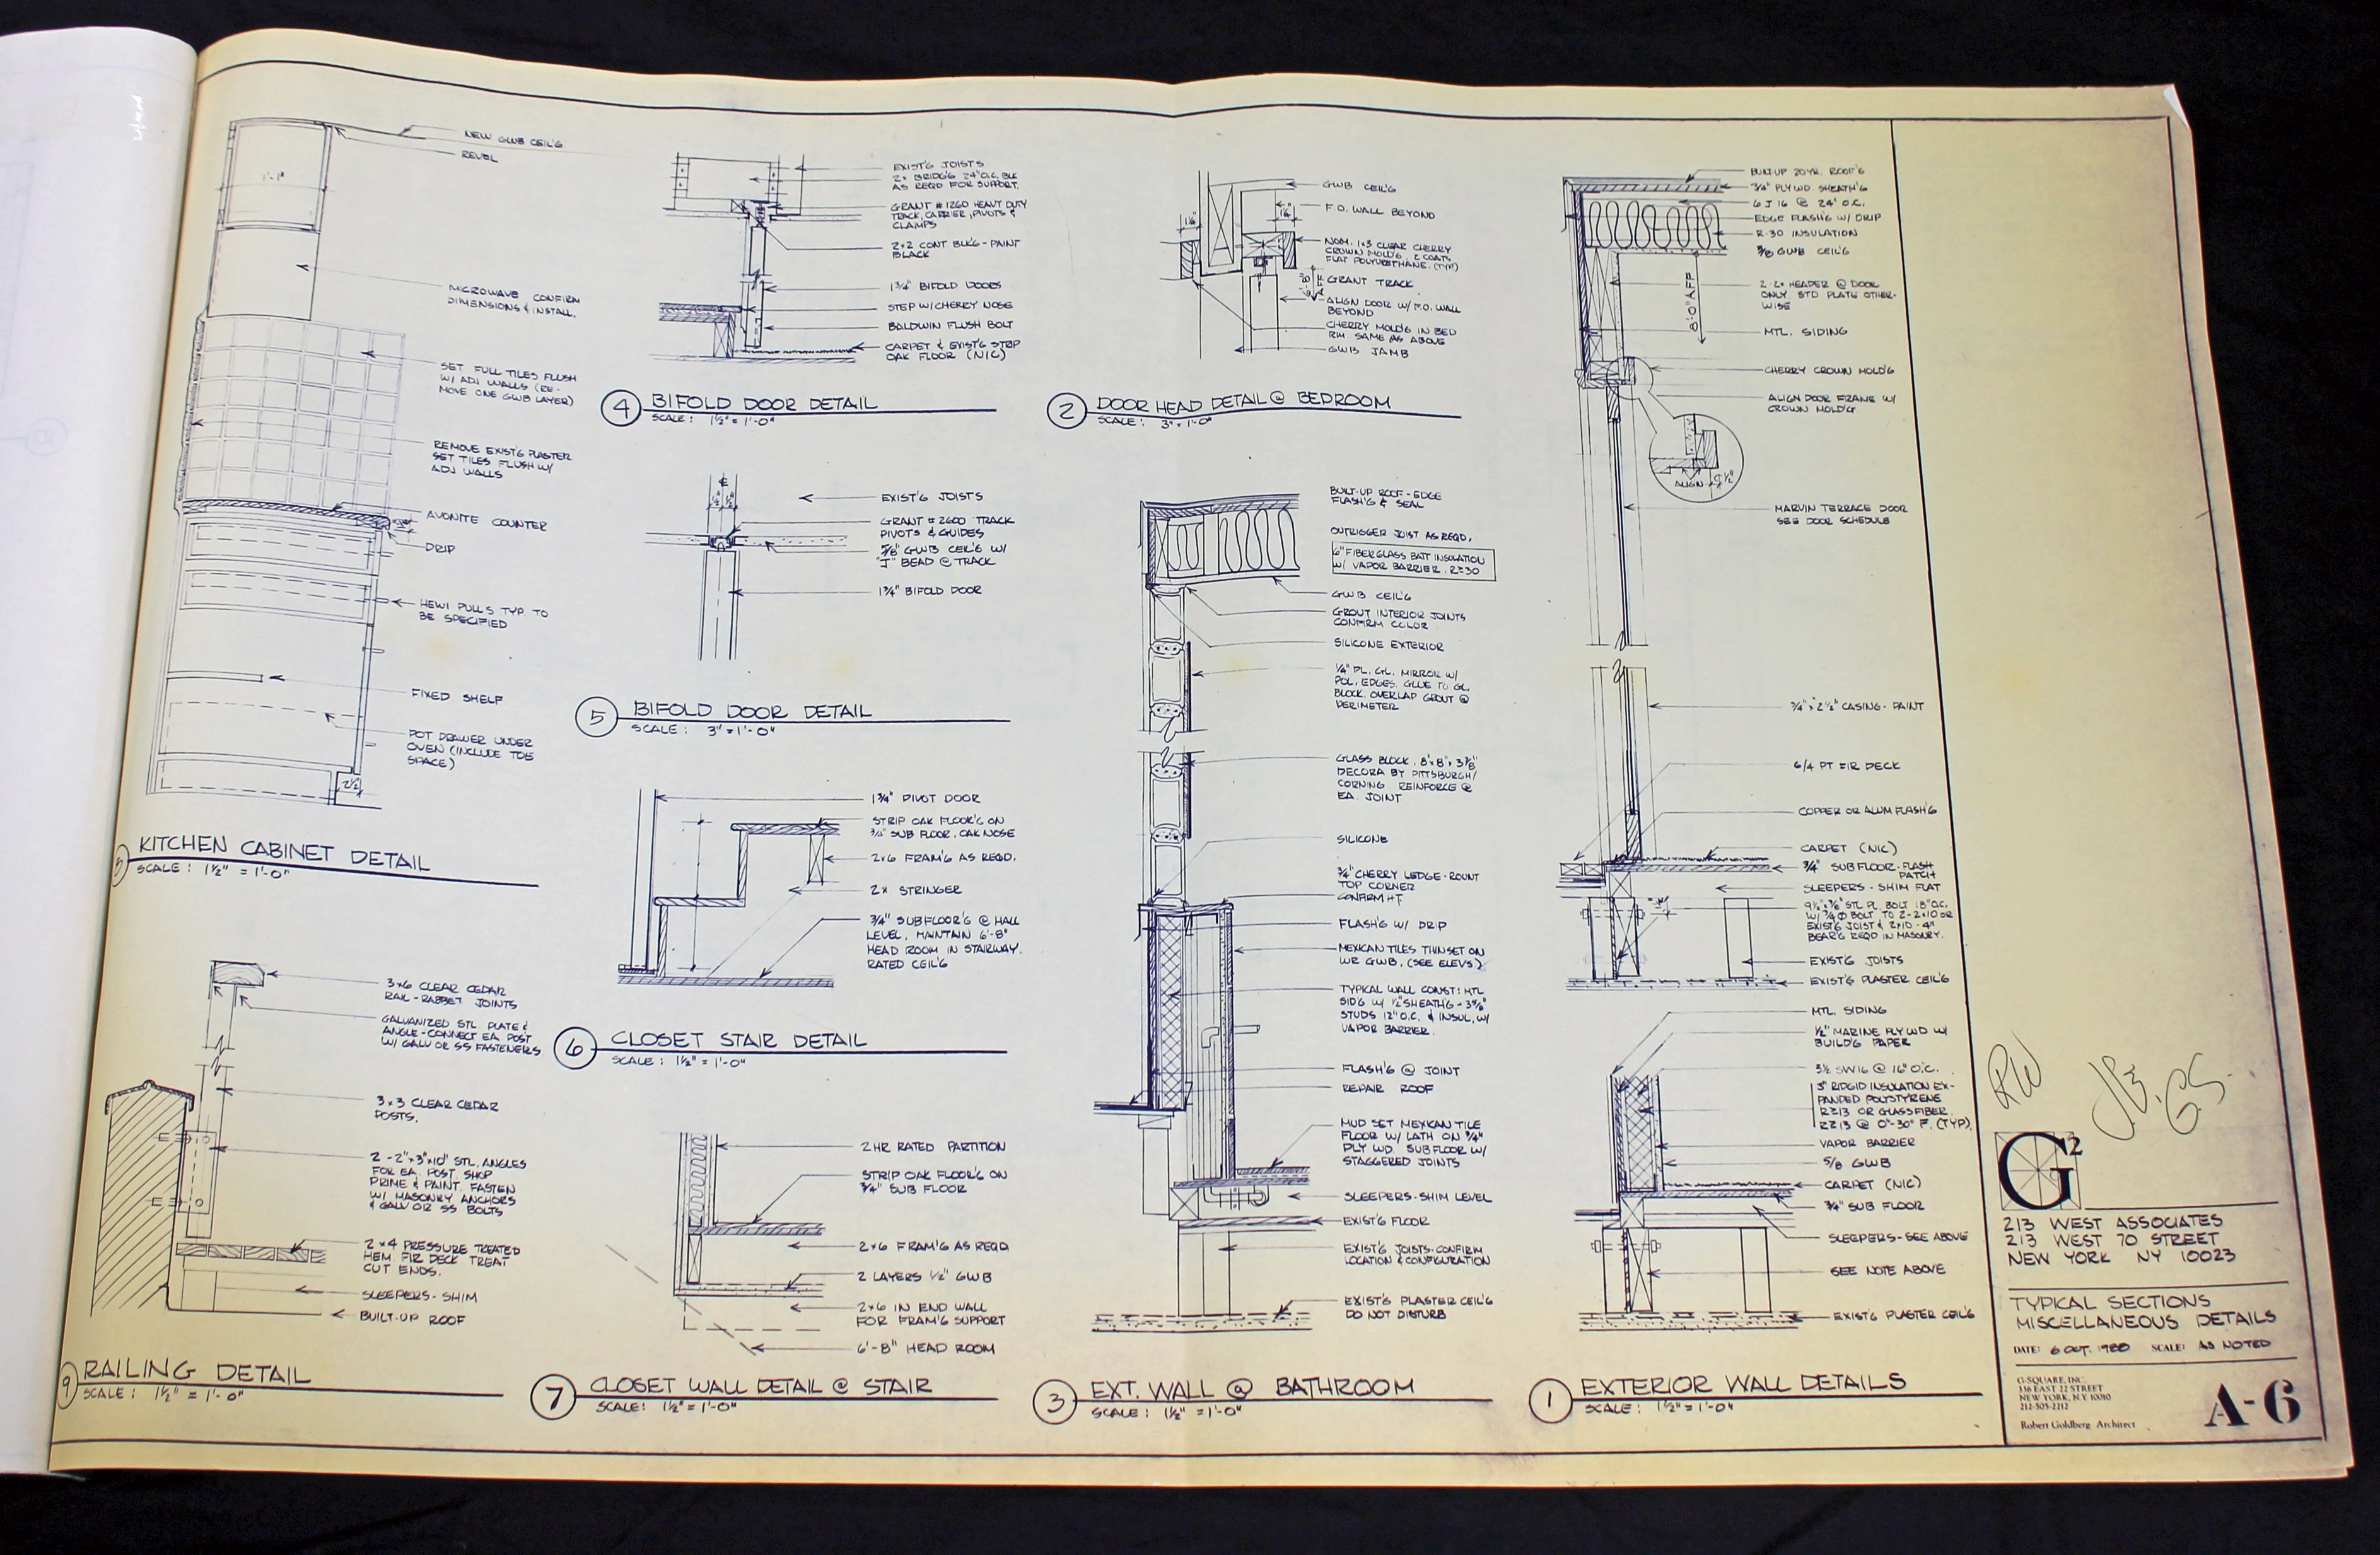 NEW GWB CEIL'G
REVEL
1'-1"
MICROWAVE CONFIRM
DIMENSIONS & INSTALL.
SET FULL TILES FLUSH
W/ ADJ WALLS (RE-
MOVE ONE GWB LAYER)
REMOVE EXIST'G PLASTER
SET TILES FLUSH W/
ADJ WALLS
AVONITE COUNTER
DRIP
HEWI PULLS TYP. TO
BE SPECIFIED
FIXED SHELF
POT DRAWER UNDER
OVEN (INCLUDE TOE
SPACE)
2½"
KITCHEN CABINET DETAIL
SCALE: 1½" = 1'-0"
3x6 CLEAR CEDAR
RAIL-RABBET JOINTS
GALVANIZED STL. PLATE &
ANGLE-CONNECT EA. POST
W/ GALV OR SS FASTENERS
3x3 CLEAR CEDAR
POSTS.
2-2"x3"x10" STL. ANGLES
FOR EA. POST. SHOP
PRIME & PAINT. FASTEN
W/ MASONRY ANCHORS
& GALV OR SS BOLTS
2x4 PRESSURE TREATED
HEM. FIR DECK TREAT
CUT ENDS.
SLEEPERS-SHIM
BUILT-UP ROOF
9
RAILING DETAIL
SCALE: 1½" = 1'-0"
EXIST'G JOISTS
2x BRIDG'G 24" O.C. BLK
AS REQD FOR SUPPORT.
GRANT #1260 HEAVY DUTY
TRACK, CARRIER, PIVOTS &
CLAMPS
2x2 CONT BLK'G-PAINT
BLACK
1¾" BIFOLD DOORS
STEP W/CHERRY NOSE
BALDWIN FLUSH BOLT
CARPET & EXIST'G STRIP
OAK FLOOR (NIC)
4
BIFOLD DOOR DETAIL
SCALE: 1½" = 1'-0"
EXIST'G JOISTS
GRANT #2600 TRACK
PIVOTS & GUIDES
5/8" GWB CEIL'G W/
"J" BEAD @ TRACK
1¾" BIFOLD DOOR
5
BIFOLD DOOR DETAIL
SCALE: 3" = 1'-0"
1¾" PIVOT DOOR
STRIP OAK FLOOR'G ON
¾" SUB FLOOR, OAK NOSE
2x6 FRAM'G AS REQD.
2x STRINGER
3/4" SUBFLOOR'G @ HALL
LEVEL, MAINTAIN 6'-8"
HEAD ROOM IN STAIRWAY.
RATED CEIL'G
6
CLOSET STAIR DETAIL
SCALE: 1½" = 1'-0"
2 HR RATED PARTITION
STRIP OAK FLOOR'G ON
¾" SUB FLOOR
2x6 FRAM'G AS REQD
2 LAYERS ½" GWB
2x6 IN END WALL
FOR FRAM'G SUPPORT
6'-8" HEAD ROOM
7
CLOSET WALL DETAIL @ STAIR
SCALE: 1½" = 1'-0"
GWB CEIL'G
F.O. WALL BEYOND
NOM. 1x3 CLEAR CHERRY
CROWN MOLD'G. 2 COATS
FLAT POLYURETHANE. (TYP)
GRANT TRACK
ALIGN DOOR W/ F.O. WALL
BEYOND
CHERRY MOLD'G IN BED
RM. SAME AS ABOVE
GWB JAMB
2
DOOR HEAD DETAIL @ BEDROOM
SCALE: 3" = 1'-0"
BUILT-UP ROOF-EDGE
FLASH'G & SEAL
OUTRIGGER JOIST AS REQD.
6" FIBERGLASS BATT INSULATION
W/ VAPOR BARRIER. R≥30
GWB CEIL'G
GROUT INTERIOR JOINTS
CONFIRM COLOR
SILICONE EXTERIOR
¼" PL. GL. MIRROR W/
POL. EDGES. GLUE TO GL.
BLOCK. OVERLAP GROUT @
PERIMETER
GLASS BLOCK. 8"x8"x3⅞"
DECORA BY PITTSBURGH/
CORNING REINFORCE @
EA. JOINT
SILICONE
¾" CHERRY LEDGE-ROUNT
TOP CORNER
CONFIRM HT
FLASH'G W/ DRIP
MEXICAN TILES THINSET ON
WR GWB. (SEE ELEVS)
TYPICAL WALL CONST: MTL
SID'G W/ ½" SHEATH'G - 3⅝"
STUDS 12" O.C. & INSUL, W/
VAPOR BARRIER.
FLASH'G @ JOINT
REPAIR ROOF
MUD SET MEXICAN TILE
FLOOR W/ LATH ON ¾"
PLY WD. SUBFLOOR W/
STAGGERED JOINTS
SLEEPERS-SHIM LEVEL
EXIST'G FLOOR
EXIST'G JOISTS-CONFIRM
LOCATION & CONFIGURATION
EXIST'G PLASTER CEIL'G
DO NOT DISTURB
3
EXT. WALL @ BATHROOM
SCALE: 1½" = 1'-0"
BUILT-UP 20 YR. ROOF'G
¾" PLYWD SHEATH'G
6 J 16 @ 24" O.C.
EDGE FLASH'G W/ DRIP
R-30 INSULATION
5/8 GWB CEIL'G
8'-0" AFF
2-2x HEADER @ DOOR
ONLY. STD PLATE OTHER-
WISE
MTL. SIDING
CHERRY CROWN MOLD'G
ALIGN DOOR FRAME W/
CROWN MOLD'G
ALIGN
½"
MARVIN TERRACE DOOR
SEE DOOR SCHEDULE
¾"x2½" CASING-PAINT
6/4 PT FIR DECK
COPPER OR ALUM FLASH'G
CARPET (NIC)
¾" SUB FLOOR-FLASH
PATCH
SLEEPERS-SHIM FLAT
9½"x⅜" STL PL. BOLT 18" O.C.
W/ ¾ φ BOLT TO 2-2x10 OR
EXIST'G JOIST & 2x10-4"
BEAR'G REQD IN MASONRY.
EXIST'G JOISTS
EXIST'G PLASTER CEIL'G
MTL. SIDING
½" MARINE PLYWD W/
BUILD'G PAPER
3½ SW16 @ 16" O.C.
3" RIDGID INSULATION EX-
PANDED POLYSTYRENE
R≥13 OR GLASSFIBER
R≥13 @ 0°-30° F. (TYP).
VAPOR BARRIER
5/8 GWB
CARPET (NIC)
¾" SUB FLOOR
SLEEPERS-SEE ABOVE
SEE NOTE ABOVE
EXIST'G PLASTER CEIL'G
1
EXTERIOR WALL DETAILS
SCALE: 1½" = 1'-0"
RW
G.S.
G²
213 WEST ASSOCIATES
213 WEST 70 STREET
NEW YORK NY 10023
TYPICAL SECTIONS
MISCELLANEOUS DETAILS
DATE: 6 OCT. 1988 SCALE: AS NOTED
G-SQUARE, INC.
336 EAST 22 STREET
NEW YORK, N.Y. 10010
212-505-2212
Robert Goldberg Architect
A-6